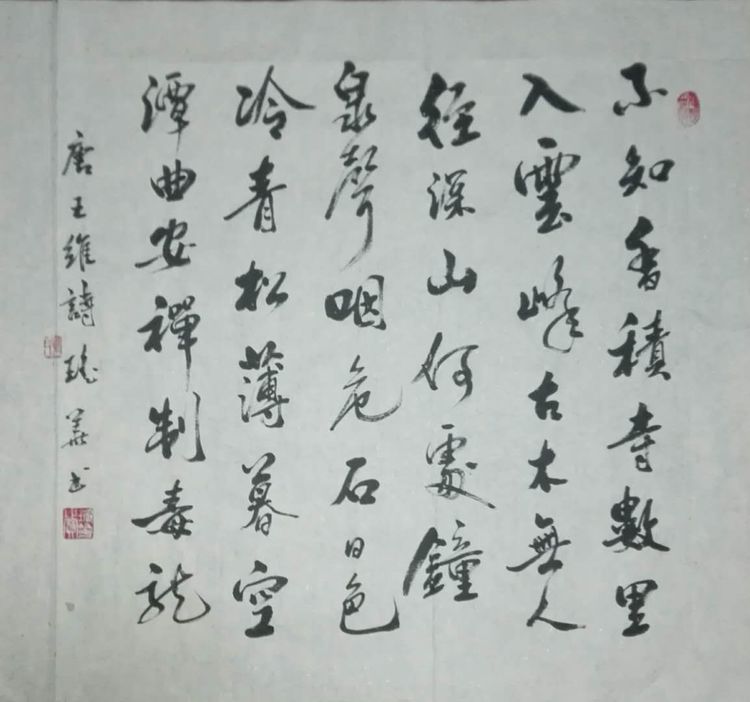 不知香積寺數里
入雲峰古木無人
徑深山何處鐘
泉聲咽危石日色
冷青松薄暮空
潭曲安禪制毒龍
唐王維詩 書